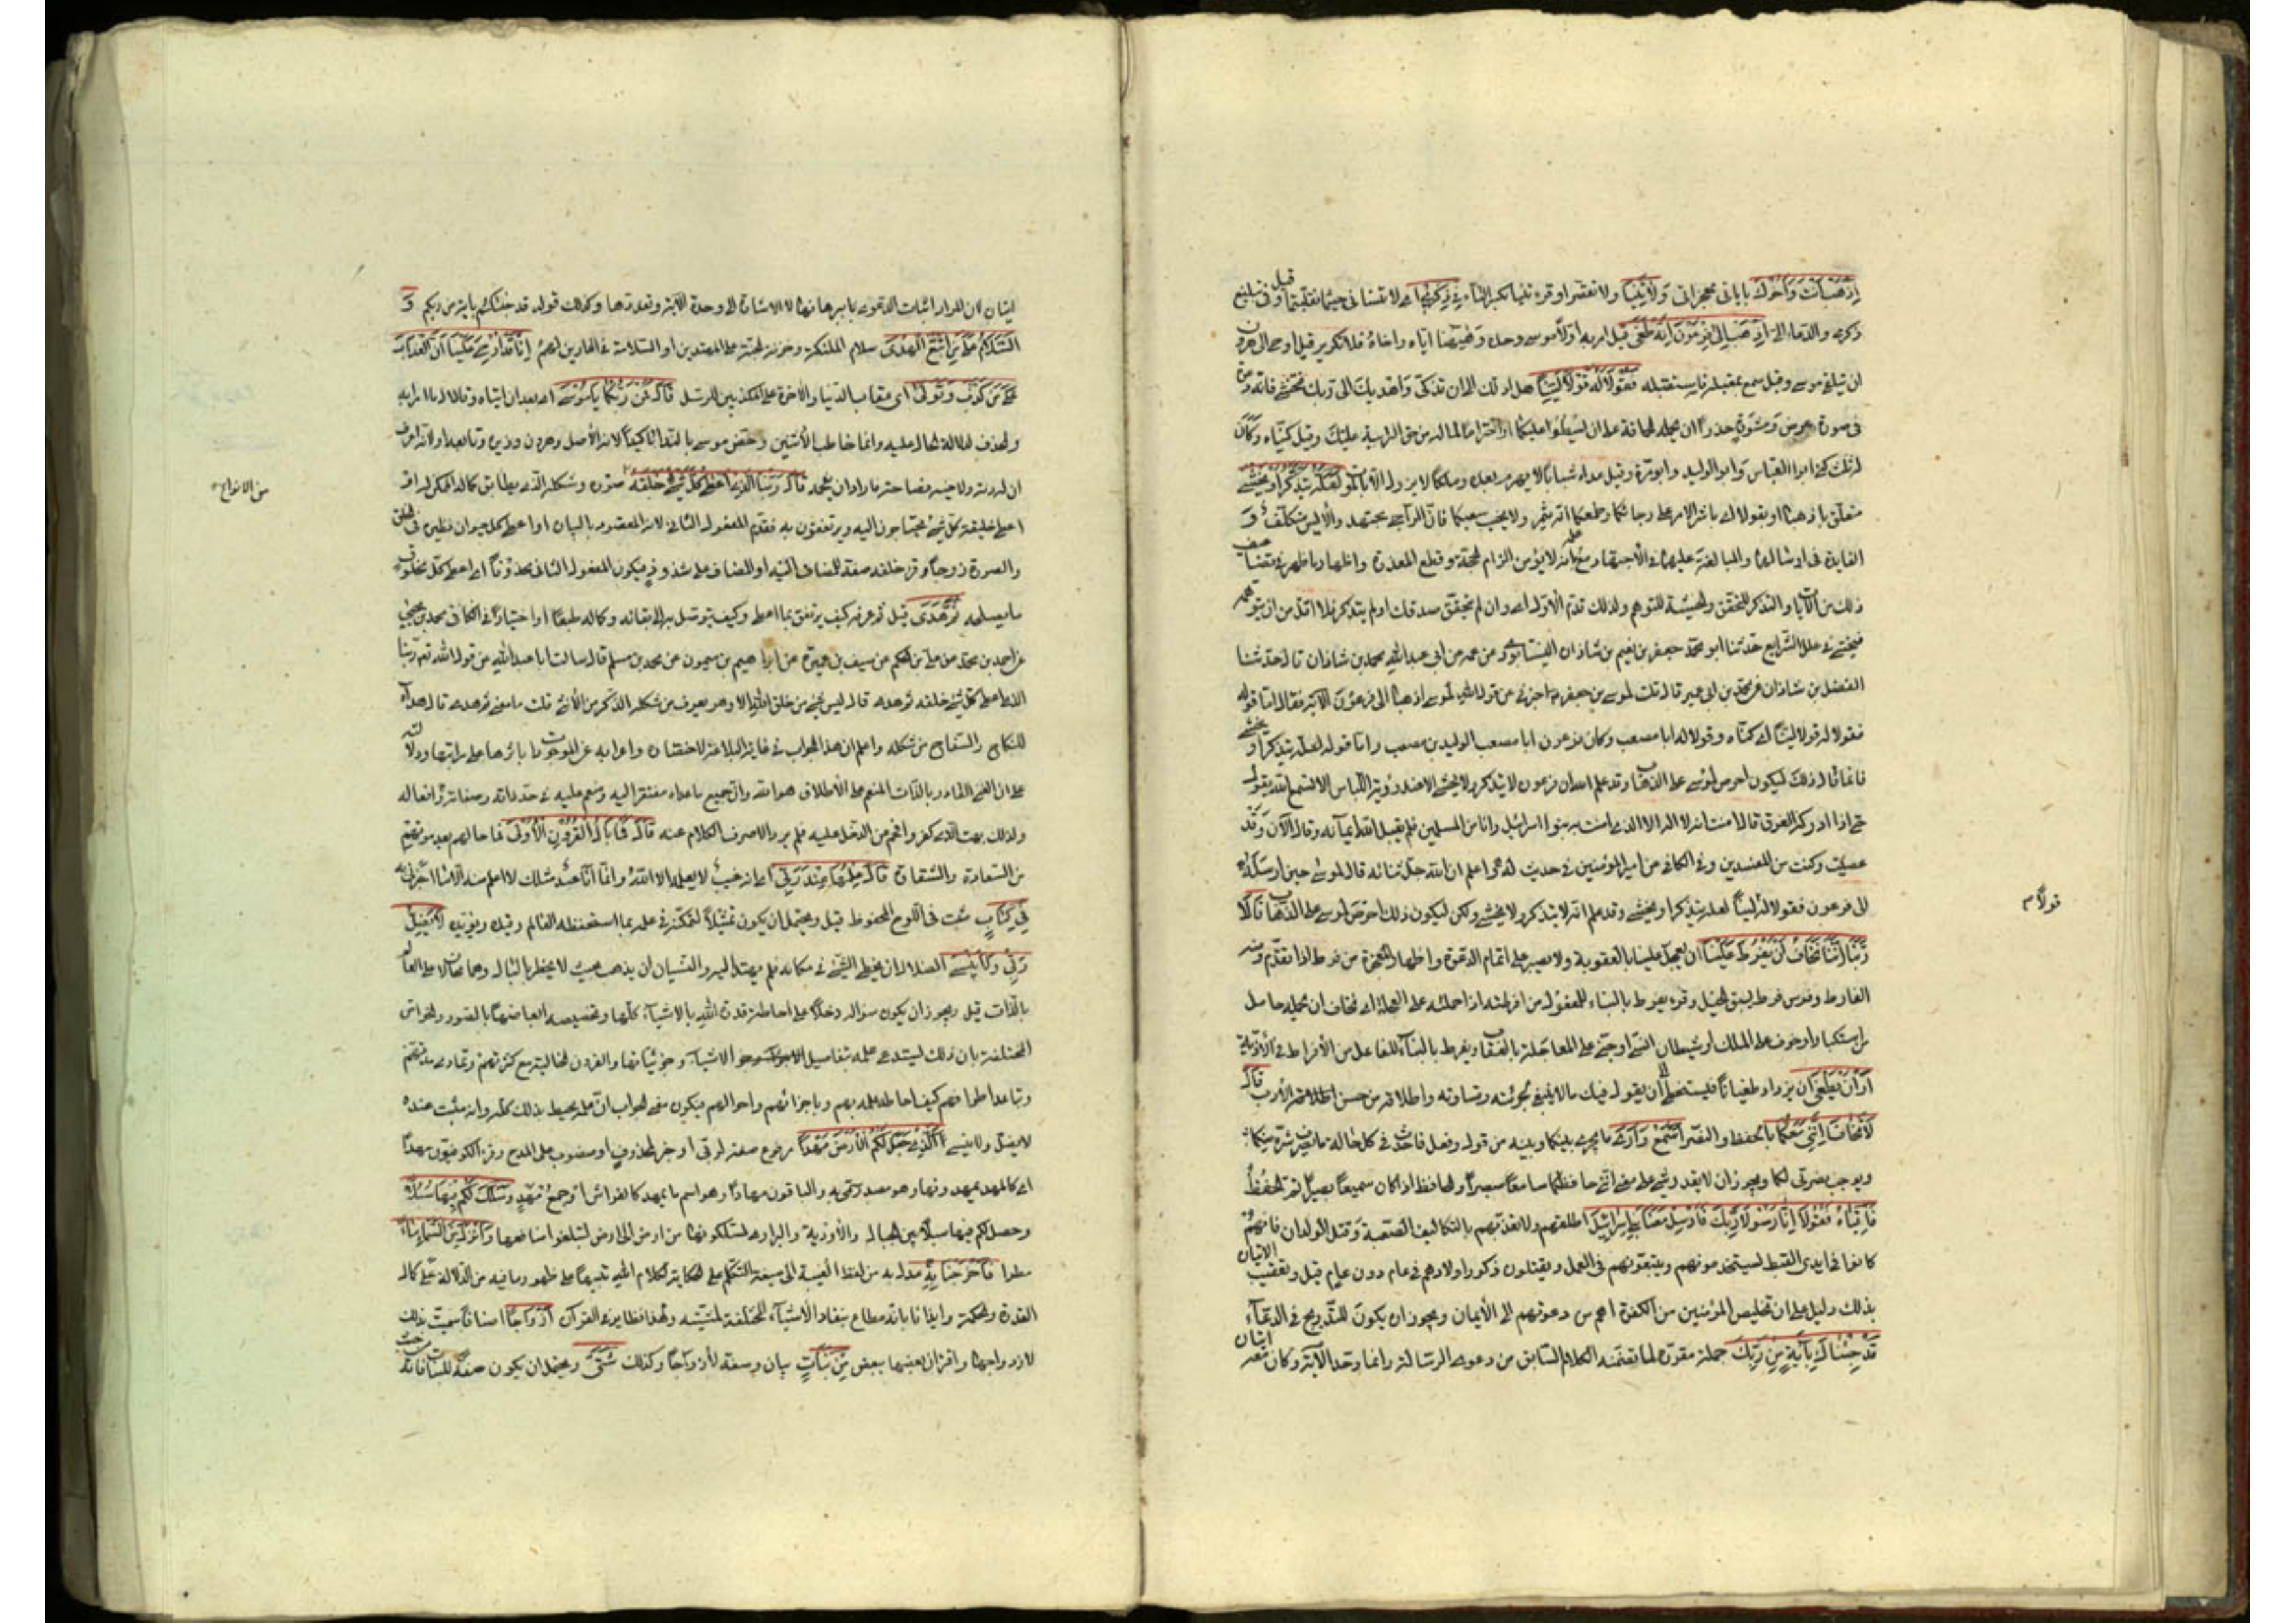 اِذْهَبْ اَنْتَ وَاَخُوكَ بِاٰيَاتِي بمعجزاتي وَلَا تَنِيَا ولا تفترا وقرء تنيا بكسر التاء فِي ذِكْرِي اى لا تنسياني حيثما تقلبتما وقيل فى تبليغ
ذكرى والدعاء الىّ اِذْهَبَا اِلٰى فِرْعَوْنَ اِنَّهُ طَغٰى قيل امر به اولا موسى وحده وههنا اياه واخاه فلا تكرير قيل اوحى الى هرون
ان يتلقى موسى وقيل سمع بمقبله فاستقبله فَقُولَا لَهُ قَوْلًا لَيِّنًا هل لك الى ان تزكى واهديك الى ربك فتخشى فانه دعوة
فى صورة عرض ومشورة حذرا ان يحمله الحماقة على ان يسطو عليكما او احتراما لما له من حق التربية عليك وقيل كنياه وكان
له ثلث كنى ابو العباس وابو الوليد وابو مرة وقيل عداه شبابا لا يهرم بعده وملكا لا يزول الا بالموت لَعَلَّهُ يَتَذَكَّرُ اَوْ يَخْشٰى
متعلق باذهبا او بقولا اى باشرا الامر على رجائكما وطمعكما انه يثمر ولا يخيب سعيكما فان الراجى مجتهد والآيس متكلف و
الفايدة فى ارسالهما والمبالغة عليهما فى الاجتهاد مع علمه بانه لا يؤمن الزام الحجة وقطع المعذرة واظهار ما ظهر فى تضاعيف
ذلك من الآيات والتذكر للمتحقق والخشية للمتوهم ولذلك قدم الاول اى وان لم يتحقق صدقكما ولم يتذكر فلا اقل من ان يتوهمه
فيخشى فى علل الشرايع حدثنا ابو محمد جعفر بن نعيم بن شاذان النيسابورى عن عمه عن ابى عبد الله محمد بن شاذان قال حدثنا
الفضل بن شاذان عن محمد بن ابى عمير قال قلت لموسى بن جعفر اخبرنى عن قول الله لموسى اذهبا الى فرعون الآية فقال اما قوله
فقولا له قولا لينا اى كنياه وقولا له ابا مصعب وكان فرعون ابا مصعب الوليد بن مصعب واما قوله لعله يتذكر او يخشى
فانما قال ذلك ليكون احرص لموسى على الذهاب وقد علم الله ان فرعون لا يتذكر ولا يخشى الا عند رؤية الباس الا تسمع الله يقول
حتى اذا ادركه الغرق قال امنت انه لا اله الا الذى امنت به بنوا اسرائيل وانا من المسلمين فلم يقبل الله ايمانه وقال الآن وقد
عصيت وكنت من المفسدين وفى الكافى عن امير المؤمنين فى حديث له واعلم ان الله جل ثنائه قال لموسى حين ارسله
الى فرعون فقولا له لينا لعله يتذكر او يخشى وقد علم انه لا يتذكر ولا يخشى ولكن ليكون ذلك احرص لموسى على الذهاب قَالَا
قولاً م
رَبَّنَا اِنَّنَا نَخَافُ اَنْ يَفْرُطَ عَلَيْنَا ان يعجل علينا بالعقوبة ولا يصبر على اتمام الدعوة واظهار المعجزة من فرط اذا تقدم ومنه
الفارط وفرس فرط يسبق الخيل وقرء يفرط بالبناء للمفعول من افرطته اذا حملته على العجلة اى نخاف ان يحمله حامل
من استكبار او خوف على الملك او شيطان انسى او جنى على المعاجلة بالعقاب ويفرط بالبناء للفاعل من الافراط فى الاذية
اَوْ اَنْ يَطْغٰى ان يزداد طغيانا فيتخطى الى ان يقول فيك ما لا ينبغى لجرئته وقساوته واطلاقه من حسن الادب قَالَ
لَا تَخَافَا اِنَّنِي مَعَكُمَا بالحفظ والنصر اَسْمَعُ وَاَرٰى ما يجرى بينكما وبينه من قول وفعل فاحدث فى كل حال ما يصرف شره عنكما
ويوجب نصرتى لكما ويجوز ان لا يقدر شىء على معنى اننى حافظكما سامعا مبصرا والحافظ اذا كان سميعا بصيرا تم الحفظ
فَاْتِيَاهُ فَقُولَا اِنَّا رَسُولَا رَبِّكَ فَاَرْسِلْ مَعَنَا بَنِي اِسْرَائِيلَ اطلقهم وَلَا تُعَذِّبْهُمْ بالتكاليف الصعبة وقتل الولدان فانهم
كانوا فى ايدى القبط يستخدمونهم ويتبعونهم فى العمل ويقتلون ذكور اولادهم فى عام دون عام قيل وتعقيب الاتيان
بذلك دليل على ان تخليص المؤمنين من الكفرة اهم من دعوتهم الى الايمان ويجوز ان يكون للتدريج فى الدعاء
قَدْ جِئْنَاكَ بِاٰيَةٍ مِنْ رَبِّكَ جملة مقررة لما تضمنه الكلام السابق من دعوى الرسالة وانما وحد الآية وكان معه ايتان
ايتان لان المراد اثبات الدعوى ببرهانها لا الاشارة الى وحدة الآية وتعددها وكذلك قوله قد جئتكم باية من ربكم وَ
السَّلَامُ عَلٰى مَنِ اتَّبَعَ الْهُدٰى سلام الملئكة وخزنة الجنة على المهتدين او السلامة فى الدارين لهم اِنَّا قَدْ اُوحِيَ اِلَيْنَا اَنَّ الْعَذَابَ
عَلٰى مَنْ كَذَّبَ وَتَوَلّٰى اى عقاب الدنيا والآخرة على المكذبين للرسل قَالَ فَمَنْ رَبُّكُمَا يَا مُوسٰى اى بعد ان اتياه وقالا له ما امرا به
والحذف لدلالة الحال عليه وانما خاطب الاثنين وخص موسى بالنداء تاكيدا لانه الاصل وهرون وزيره وتابعه او لانه عرف
ان له رتة ولاخيه فصاحة فاراد ان يفحمه قَالَ رَبُّنَا الَّذِي اَعْطٰى كُلَّ شَيْءٍ خَلْقَهُ صورته وشكله الذى يطابق كماله الممكن له او
من الانواع
اعطى خليقته كل شىء يحتاجون اليه ويرتفقون به فقدم المفعول الثانى لانه المقصود بالبيان او اعطى كل حيوان نظيره فى الخلق
والصورة زوجا وقرء خلقه صفة للمضاف اليه او المضاف على شذوذ فيكون المفعول الثانى محذوفا اى اعطى كل مخلوق
ما يصلحه ثُمَّ هَدٰى قيل ثم عرفه كيف يرتفق بما اعطى وكيف يتوصل به الى بقائه وكماله طبعا او اختيارا فى الكافى محمد بن يحيى
عن احمد بن محمد عن على بن الحكم عن سيف بن عميرة عن ابراهيم بن ميمون عن محمد بن مسلم قال سالت ابا عبد الله عن قول الله تع ربنا
الذى اعطى كل شىء خلقه ثم هدى قال ليس شىء من خلق الله الا وهو يعرف من شكله الذكر من الانثى قلت ما معنى ثم هدى قال هداه
للنكاح والسفاح من شكله واعلم ان هذا الجواب فى غاية البلاغة لاختصاره واعرابه عن الموجودات باسرها على مراتبها ودلالته
على ان الغنى القادر بالذات المنعم على الاطلاق هو الله وان جميع ما عداه مفتقر اليه ومنعم عليه فى حد ذاته وصفاته وافعاله
ولذلك بهت الذى كفر وافحم من الدخل عليه فلم ير الا صرف الكلام عنه قَالَ فَمَا بَالُ الْقُرُونِ الْاُولٰى فما حالهم بعد موتهم
من السعادة والشقاوة قَالَ عِلْمُهَا عِنْدَ رَبِّي اى انه غيب لا يعلمه الا الله وانما انا عبد مثلك لا اعلم منه الا ما اخبرنى به
فِي كِتَابٍ مثبت فى اللوح المحفوظ قيل ويحتمل ان يكون تمثيلا لتمكنه فى علمه بما استحفظه العالم وقيده ويؤيده لَا يَضِلُّ
رَبِّي وَلَا يَنْسٰى الضلال ان يخطى الشىء فى مكانه فلم يهتد اليه والنسيان ان يذهب بحيث لا يخطر بالبال وهما محالان على العالم
بالذات قيل ويجوز ان يكون سؤاله دخلا على احاطة قدرة الله بالاشياء كلها وتخصيصه ابعاضها بالصور والخواص
المختلفة بان ذلك يستدعى علمه بتفاصيل الاشياء وجزئياتها والقرون الخالية مع كثرتهم وتمادى مدتهم
وتباعد اطرافهم كيف احاط علمه بهم وباجزائهم واحوالهم فيكون معنى الجواب ان علمه يحيط بذلك كله وانه مثبت عنده
لا يضل ولا ينسى اَلَّذِي جَعَلَ لَكُمُ الْاَرْضَ مَهْدًا مرفوع صفة لربى او خبر لمحذوف او منصوب على المدح وقرء الكوفيون مهدا
اى كالمهد يمهدونها وهو مصدر سمى به والباقون مهادا وهو اسم ما يمهد كالفراش او جمع مهد وَسَلَكَ لَكُمْ فِيهَا سُبُلًا
وحصل لكم فيها سبلا بين الجبال والاودية والبرارى تسلكونها من ارض الى ارض لتبلغوا منافعها وَاَنْزَلَ مِنَ السَّمَاءِ مَاءً
مطرا فَاَخْرَجْنَا بِهِ عدل به من لفظ الغيبة الى صيغة التكلم على الحكاية لكلام الله تنبيها على ظهور ما فيه من الدلالة على كمال
القدرة والحكمة وايذانا بانه مطاع تنقاد الاشياء المختلفة لمشيته ولهذا نظاير فى القرآن اَزْوَاجًا اصنافا سميت بذلك
لازدواجها واقتران بعضها ببعض مِنْ نَبَاتٍ بيان وصفة لازواجا وكذلك شَتّٰى ويحتمل ان يكون صفة للنبات فانه